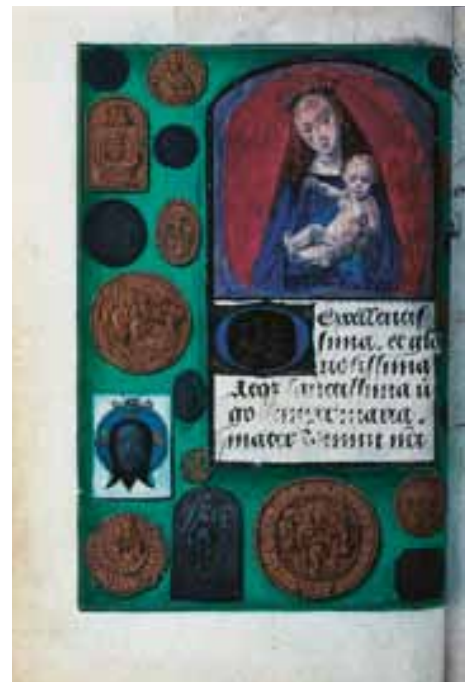 O excellentis
sima. et glo
riosissima
Atqz sanctissima ũ
go semper maria.
mater domini nr̃i